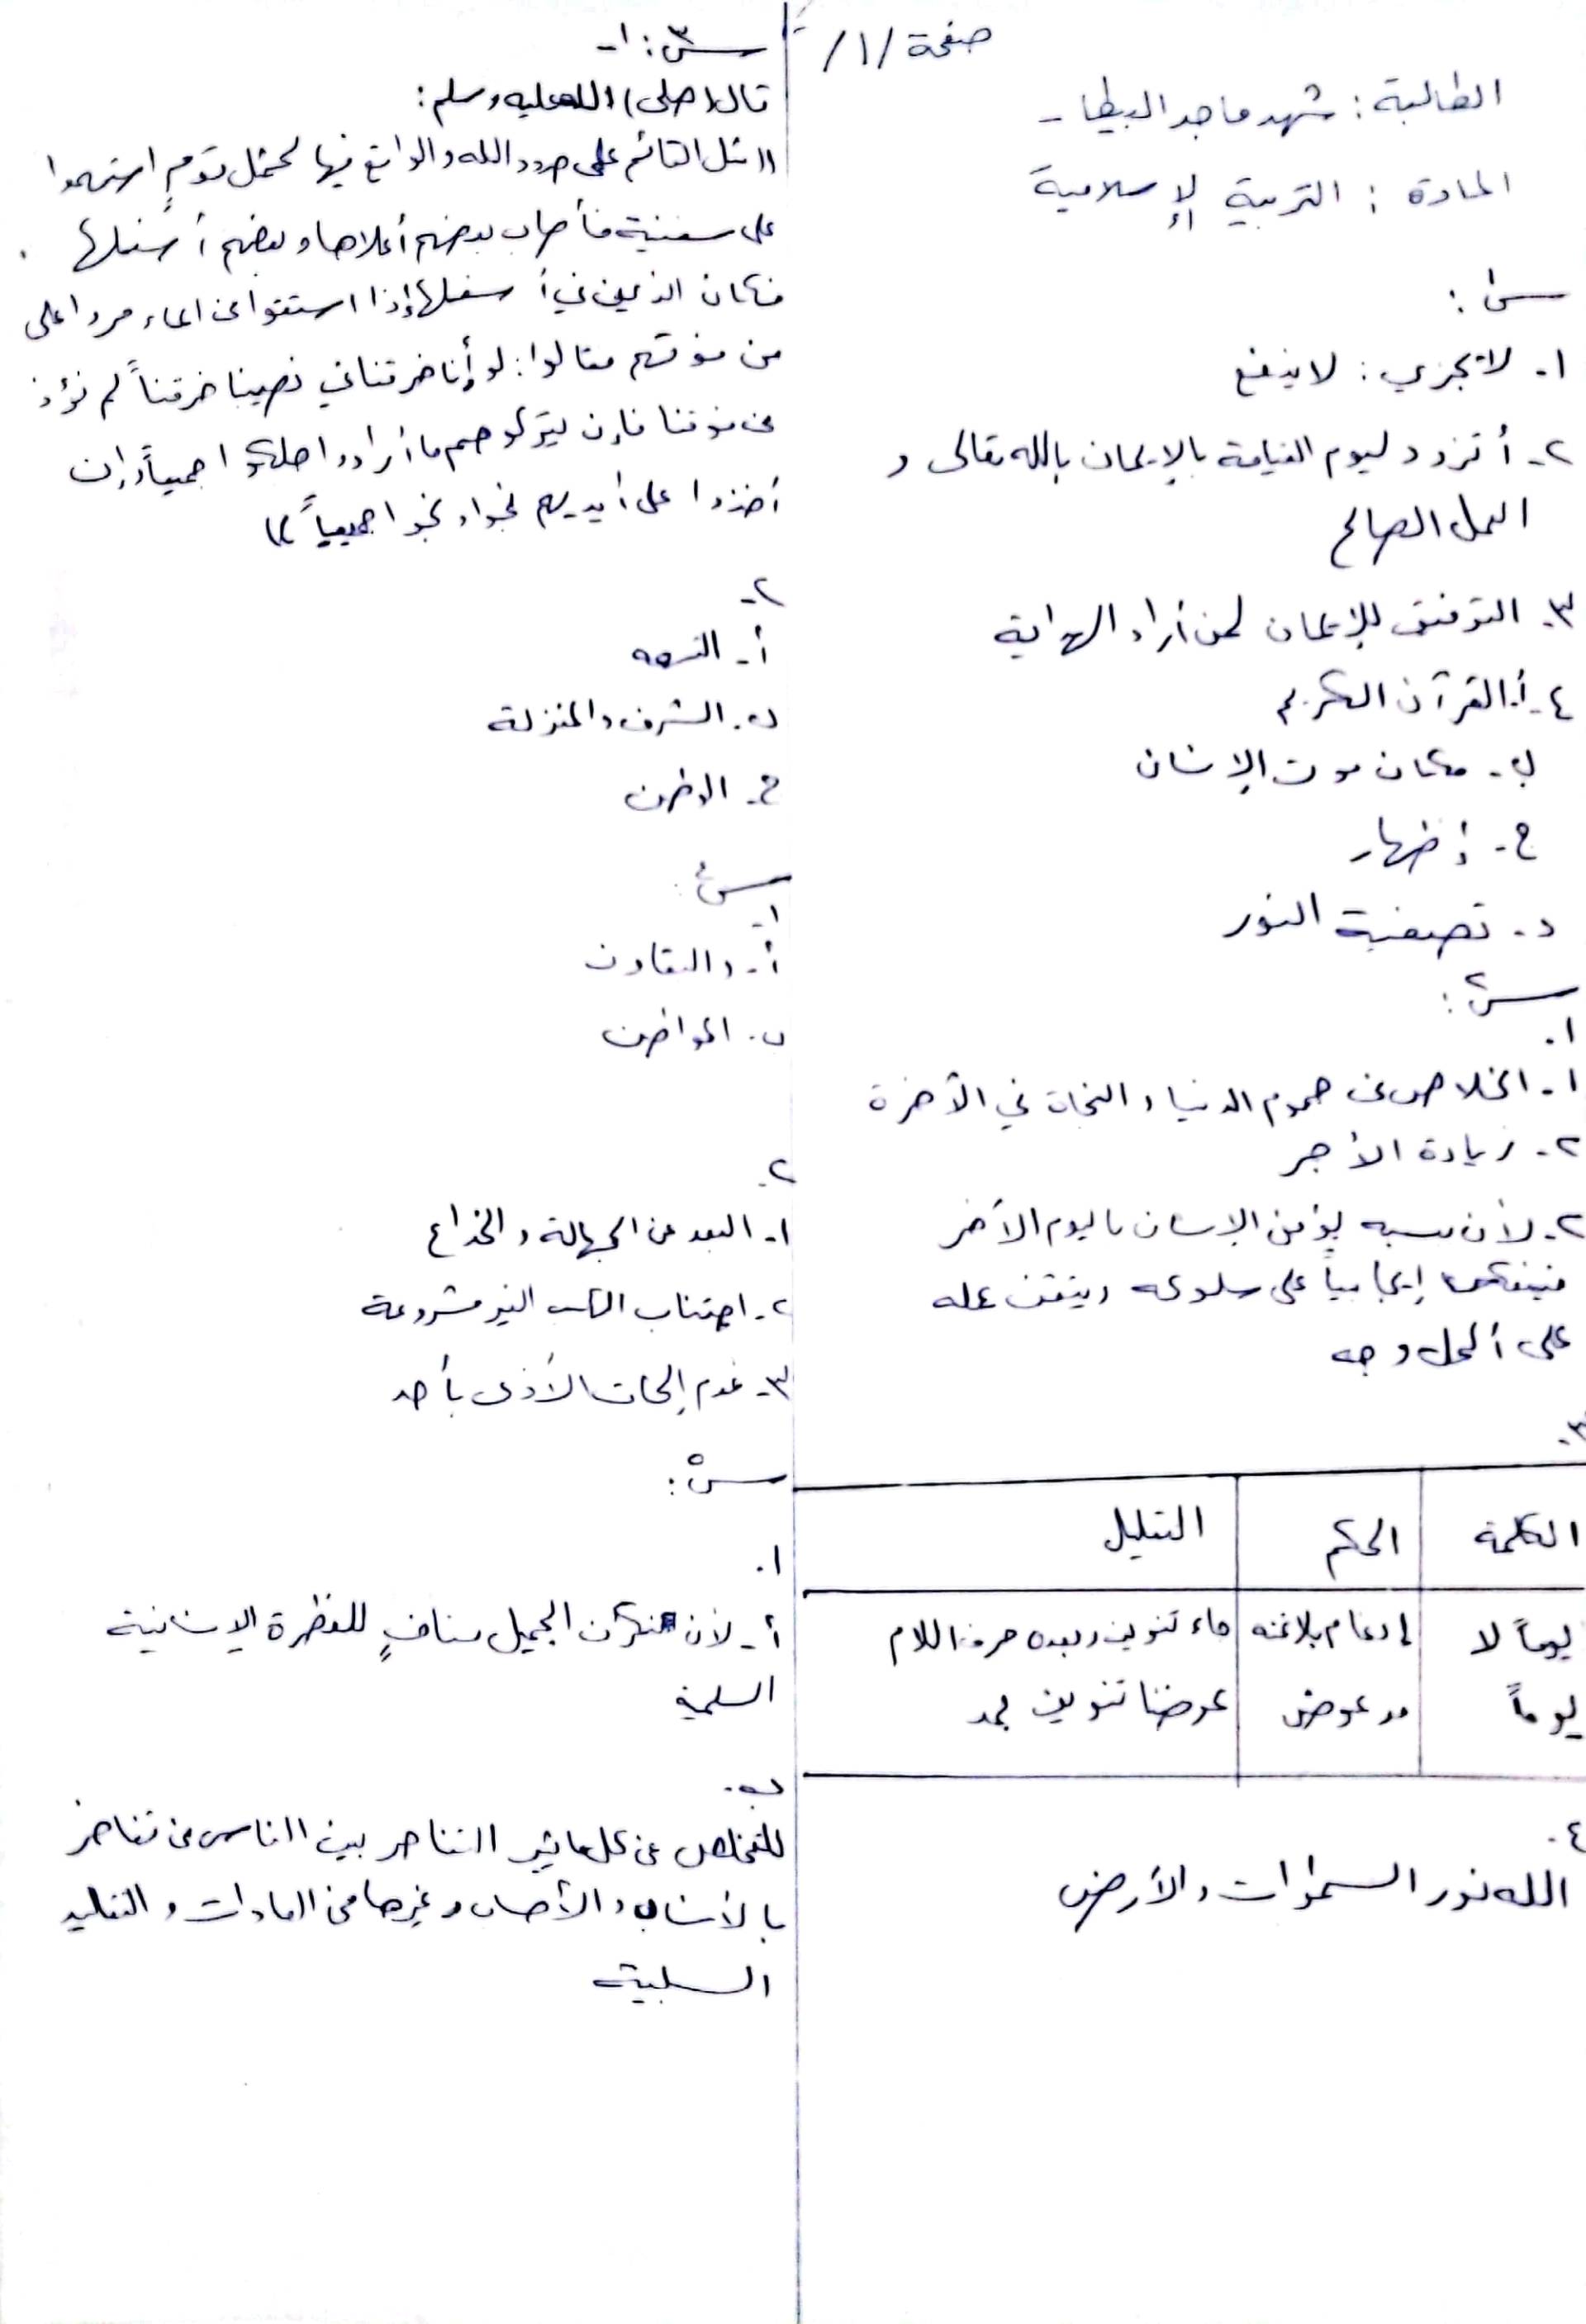 صفحة /١/
الطالبة : شهد ماجد البيطار
المادة : التربية الإسلامية
س١ :
١- لا تجزي : لا ينفع
٢- أتزود ليوم القيامة بالإيمان بالله تعالى و
العمل الصالح
٣- التوفيق للإيمان لمن أراد الهداية
٤- أ. القرآن الكريم
ب- مكان موت الإنسان
ج- إظهار
د- تصفية النور
س٢ :
١.
١- الخلاص من هموم الدنيا والنجاة في الآخرة
٢- زيادة الأجر
٢- لأن بسببه يؤمن الإنسان باليوم الآخر
فينعكس إيجابياً على سلوكه ويتقن عمله
على أكمل وجه
٣.
الكلمة الحكم التعليل
يوماً لا إدغام بلا غنه جاء تنوين وبعده حرف اللام
يوماً مد عوض عوضنا تنوين بمد
٤.
الله نور السموات والأرض
س٣ : ١-
قال (صلى) الله عليه وسلم :
((مثل القائم على حدود الله والواقع فيها كمثل قومٍ استهموا
على سفينة فأصاب بعضهم أعلاها وبعضهم أسفلها
فكان الذين في أسفلها إذا استقوا من الماء مروا على
من فوقهم فقالوا : لو أنا خرقنا في نصيبنا خرقاً لم نؤذ
من فوقنا فإن يتركوهم ما أرادوا هلكوا جميعاً وإن
أخذوا على أيديهم نجوا ونجوا جميعاً))
٢-
أ-
ب. الشرف والمنزلة
ج- الوطن
س٤ :
١-
أ- والتعاون
ب. المواطن
٢.
١- البعد عن الجهالة والخداع
٢- اجتناب الكسب الغير مشروعة
٣- عدم إلحاق الأذى بأحد
س٥ :
١.
أ- لأن نكران الجميل منافٍ للفطرة الإنسانية
السليمة
ب.
للتخلص من كل ما يثير التناحر بين الناس من تفاخر
بالأنساب والأحساب وغيرها من العادات والتقاليد
السلبية